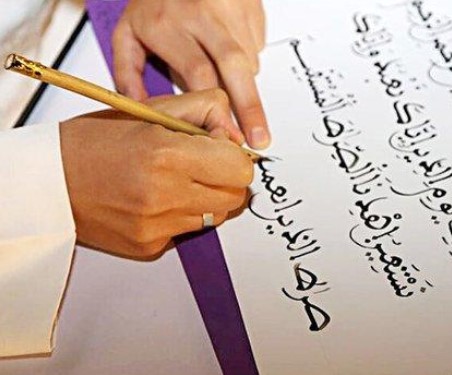 الرحيم
يوم الدين إياك نعبد وإياك
نستعين اهدنا الصراط المستقيم
صراط الذين انعمت